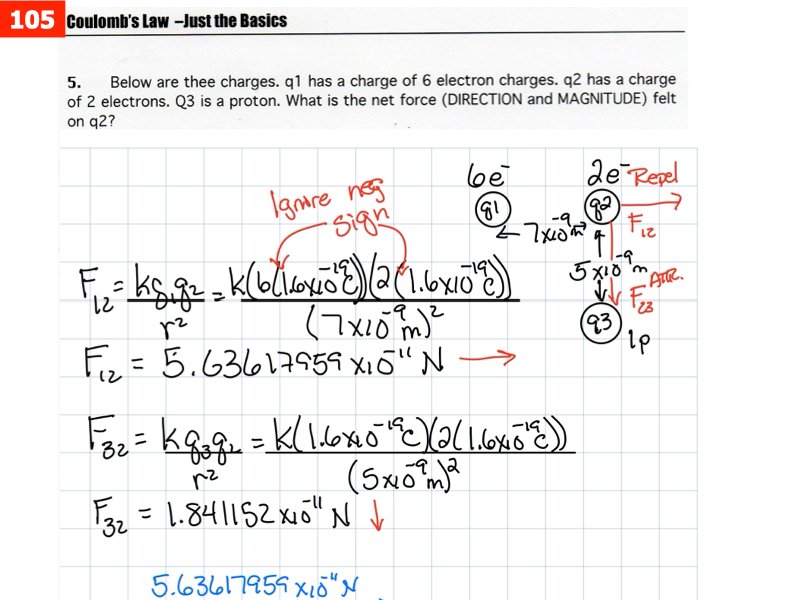 105 Coulomb's Law –Just the Basics
5. Below are thee charges. q1 has a charge of 6 electron charges. q2 has a charge
of 2 electrons. Q3 is a proton. What is the net force (DIRECTION and MAGNITUDE) felt
on q2?
6e⁻ 2e⁻ Repel
Ignore neg
sign
q1 q2
← 7x10⁻⁹m → F₁₂
5x10⁻⁹m
Attr.
F₂₃
q3 1p
F₁₂ = kq₁q₂/r² = k(6(1.6x10⁻¹⁹C))(2(1.6x10⁻¹⁹C))/(7x10⁻⁹m)²
F₁₂ = 5.63617959 x10⁻¹¹ N →
F₃₂ = kq₃q₂/r² = k(1.6x10⁻¹⁹C)(2(1.6x10⁻¹⁹C))/(5x10⁻⁹m)²
F₃₂ = 1.841152 x10⁻¹¹ N ↓
5.63617959 x10⁻¹¹ N